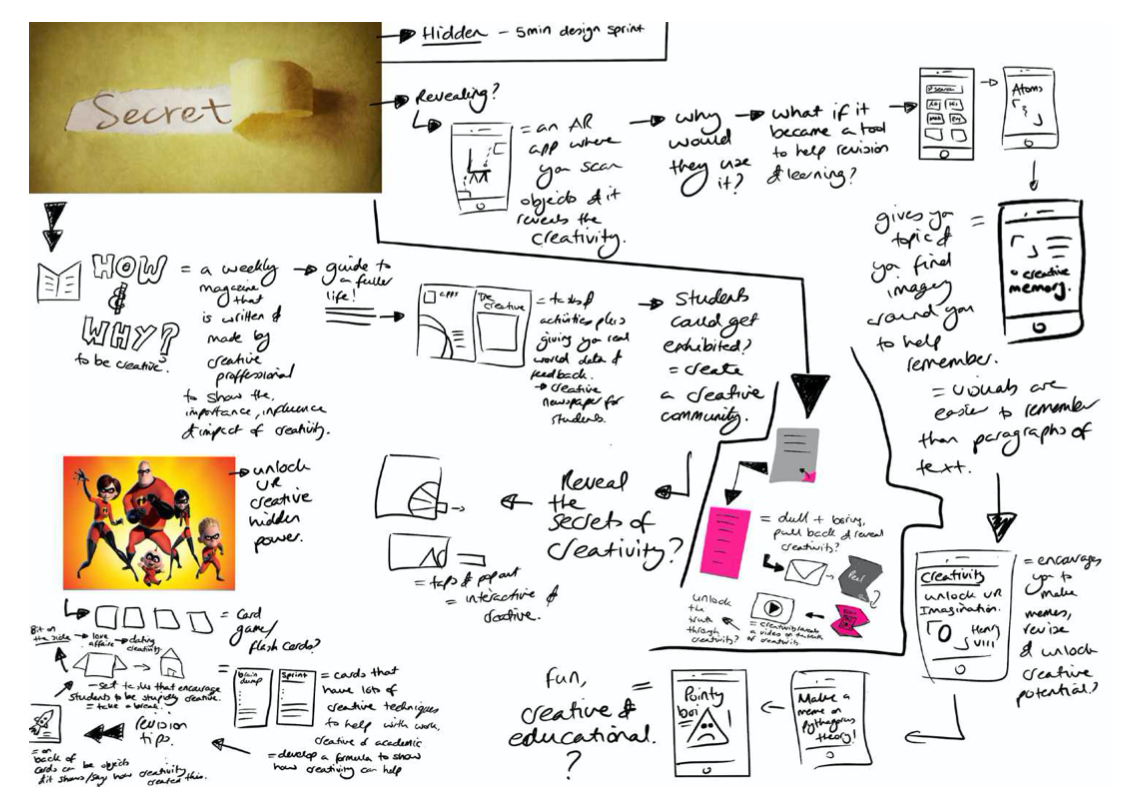 Secret
Hidden - 5min design sprint
Revealing?
= an AR
app where
you scan
objects & it
reveals the
creativity.
why
would
they use
it?
what if it
became a tool
to help revision
& learning?
search
Atoms
gives you
topic &
you find
imagery
around you
to help
remember.
= visuals are
easier to remember
than paragraphs of
text.
creative
memory.
HOW
&
WHY?
to be creative.
= a weekly
magazine
that
is written &
made by
creative
proffessional
to show the
importance, influence
& impact of creativity.
guide to
a fuller
life!
apps
The
creative
= tasks &
activities plus
giving you real
world data &
feedback.
→ creative
newspaper for
students.
students
could get
exhibited?
= create
a creative
community.
Reveal
the
secrets of
creativity?
= tabs & pop out
= interactive &
creative.
= dull + boring,
pull back & reveal
creativity?
Peel
unlock
the
truth
through
creativity?
= creativity reveals
a video on the back
of creativity.
Creativity
unlock UR
Imagination.
Henry
VIII
= encourages
you to
make
memes,
revise
& unlock
creative
potential?
Make a
meme on
pythagorus
theory!
Pointy
boi
=
fun,
creative &
educational.
?
unlock
UR
creative
hidden
power.
= card
game/
flash cards?
Bit on
the side
→ love
affaire
→ dating
creativity.
- set tasks that encourage
students to be stupidly creative.
= take a break.
brain
dump
Sprint
= cards that
have lots of
creative techniques
to help with work.
creative & academic
= develop a formula to show
how creativity can help
revision
tips.
= on
back of
cards can be objects
& it shows/says how creativity
created this.